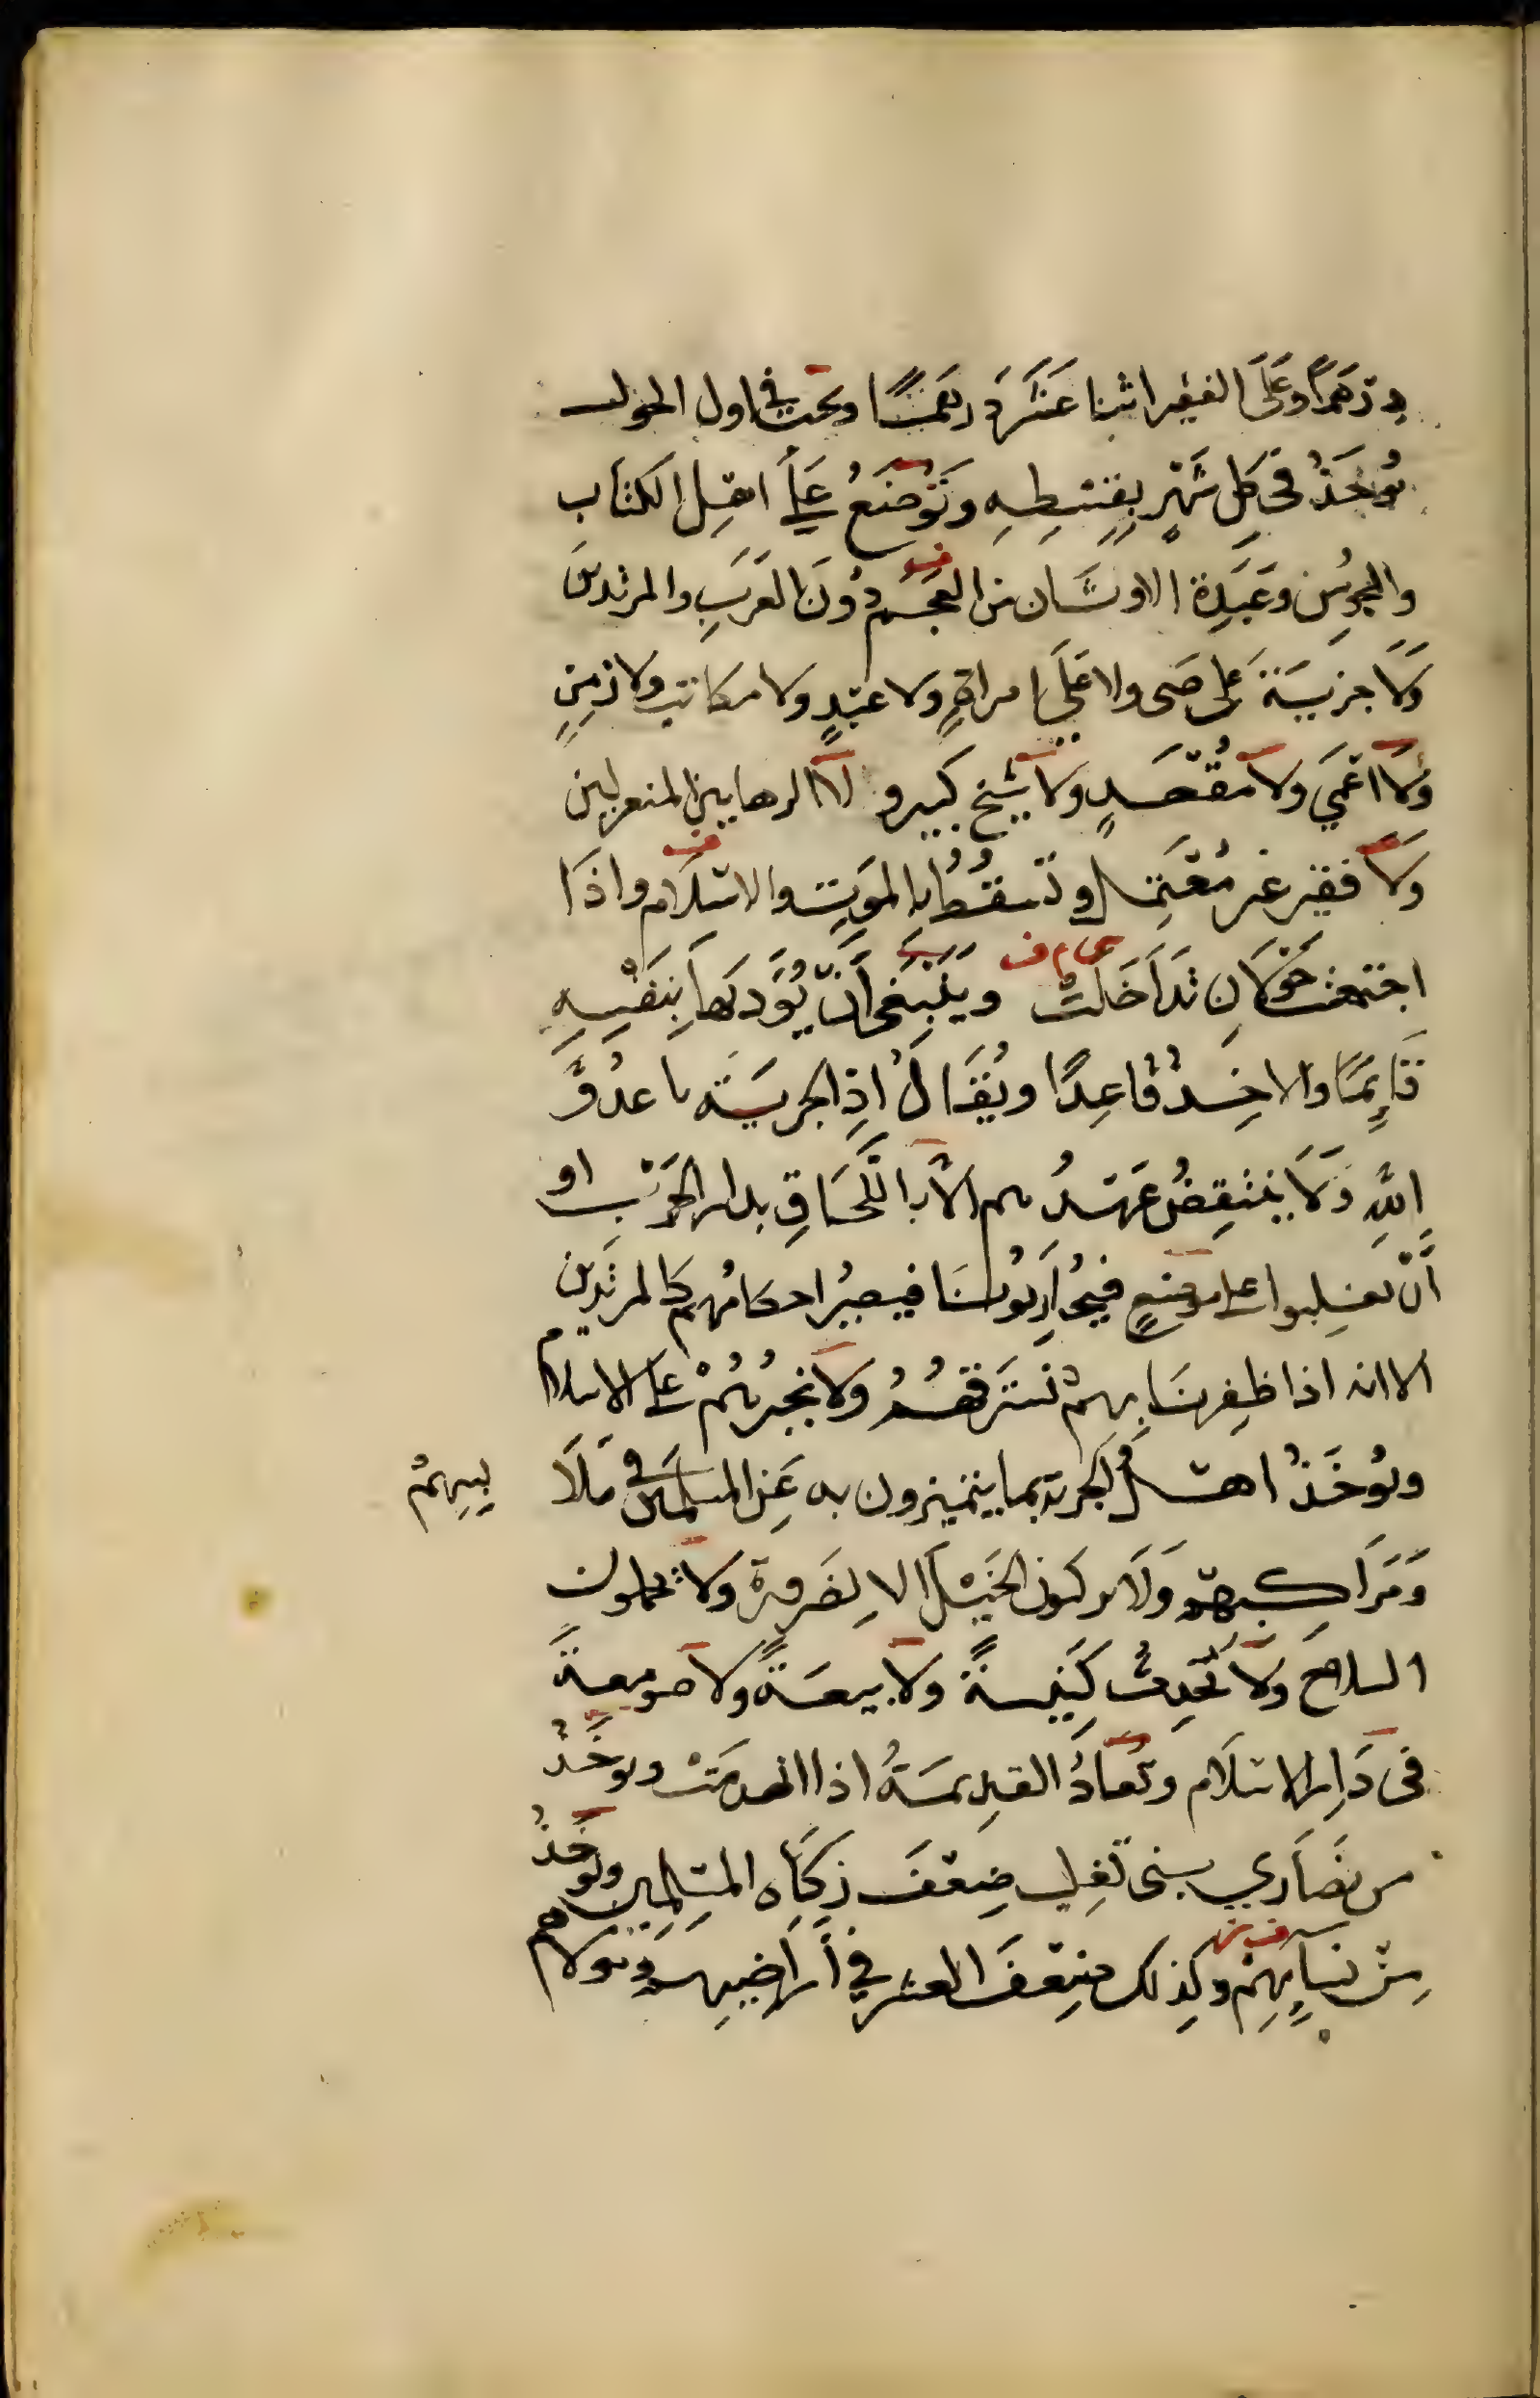 درهما وَعَلَى الفقير اثنا عَشَرَ درهمًا وتجب في اول الحول
تُوخَذُ في كلِ شَهْرٍ بِقِسْطِهِ وَتُوْضَعُ عَلَى اهْلِ الكتَاب
والمجوسِ وَعَبَدَة الاوثَان من العَجَمِ دُونَ العَرَبِ والمرتدين
وَلَا جزيَة عَلى صَبي ولا عَلَى امراةٍ ولا عَبْدٍ ولا مكاتب ولا زَمِنٍ
وَلَا اعْمَي ولا مُقْعَدٍ ولا شَيْخ كبير ولا الرهابين المنعزلين
ولا فقيرٍ غير مُعْتَمِلٍ وتَسْقُطُ بالمَوتِ والاسْلَام واذَا
اجتمعت حَوْلَانِ تَدَاخَلَتْ ويَنْبَغي اَنْ يُؤدّيهَا بِنَفْسِهِ
قَايِمًا والاخِذُ قَاعِدًا ويُقَالُ اَدِّ الجزيَة يا عدُوَّ
اللهِ وَلَا يَنْتَقِضُ عَهْدُهم الا باللَّحَاقِ بدار الحَرْبِ او
أَنْ يغلِبوا على موضعٍ فيُحَارِبُونَنَا فيصيرُ احكامُهم كالمرتدين
الا انه اذا ظفِرنَا بهمْ نَسْتَرقُهُمْ ولا نجبرُهُمْ على الاسلام
ويُوخَذُ اهْلُ الجزية بما يتميزون به عَنِ المسلمين في مَلَا بِسِهِمْ
وَمَرَاكبهِم وَلَا يركبون الخَيْلَ الا لِضَرورة ولا يحملون
السلاحَ ولا تُحْدثُ كَنِيسةً ولا بيعَةً ولا صومعةً
في دَارِ الاسْلَام وتُعادُ القديمَةُ اذا انهدمَتْ ويوخَذُ
من نصَارَي بني تَغلِب ضِعْفَ زكَاة المسْلِمين ويوخَذُ
مِنْ نِسَايِهِمْ وكذلك ضِعْفَ العشر في أَرَاضِيهِم ومولاهم